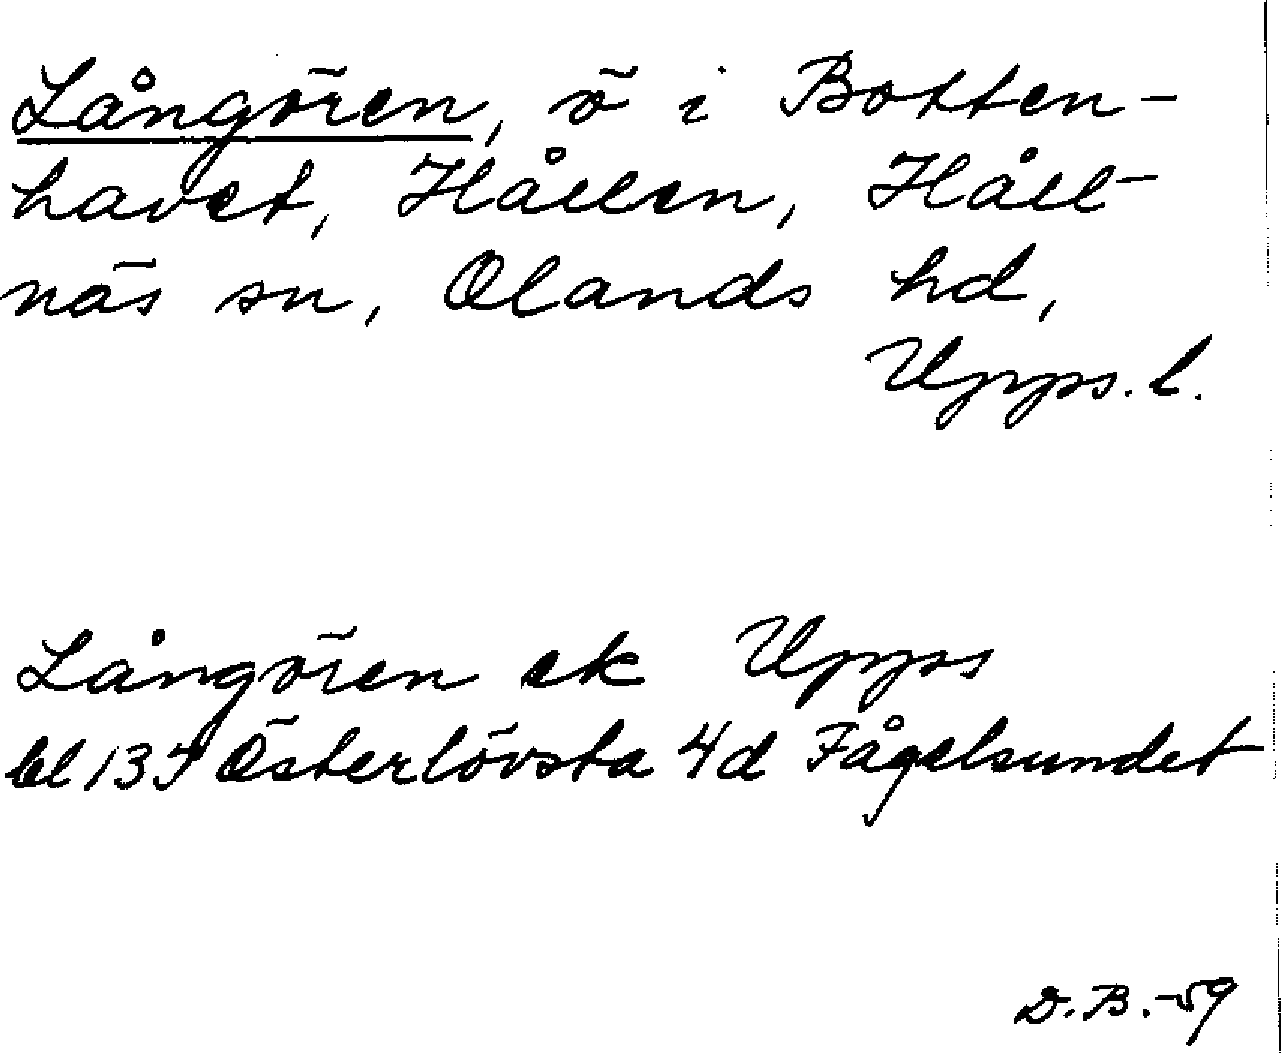 Långören, ö i Botten-
havet, Hållen, Håll-
näs sn, Olands hd,
Upps. l.
Långören ek Upps
bl 13 I Österlövsta 4d Fågelsundet
D.B.-59